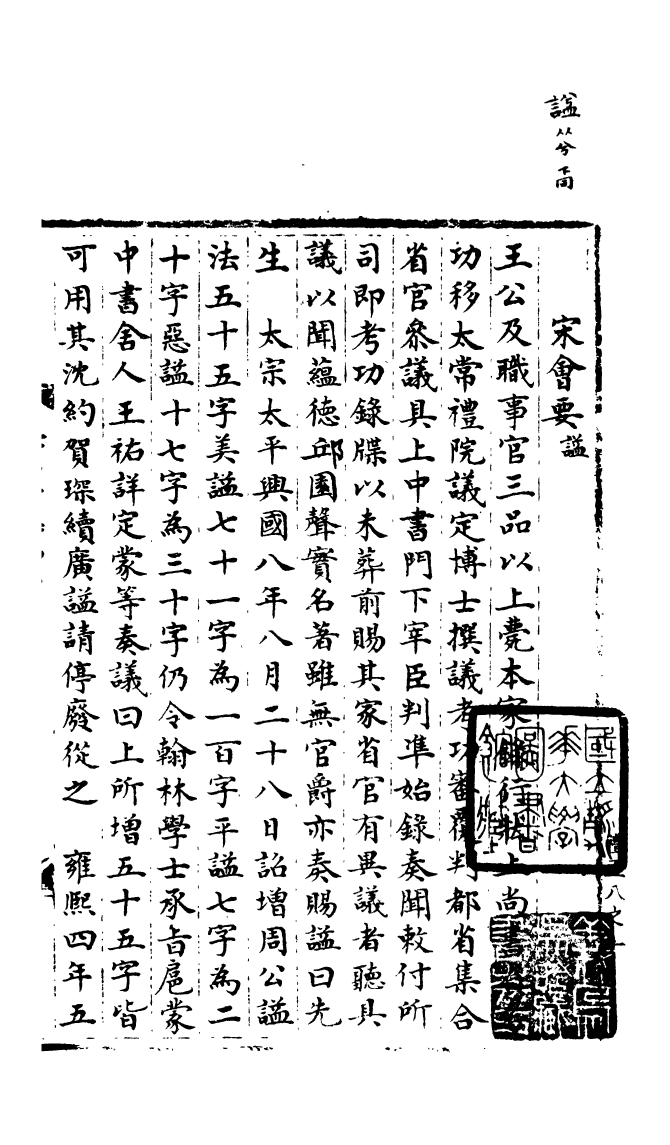 諡 从兮
宋會要 諡
王公及職事官三品以上薨本家錄行狀上尚書省考
功移太常禮院議定博士撰議考功審覆判都省集合
省官叅議具上中書門下宰臣判準始錄奏聞敕付所
司即考功錄牒以未葬前賜其家省官有異議者聽具
議以聞蘊德邱園聲實名著雖無官爵亦奏賜諡曰先
生　太宗太平興國八年八月二十八日詔增周公諡
法五十五字美諡七十一字為一百字平諡七字為二
十字惡諡十七字為三十字仍令翰林學士承旨扈蒙
中書舍人王祐詳定蒙等奏議曰上所增五十五字皆
可用其沈約賀琛續廣諡請停廢從之　雍熙四年五